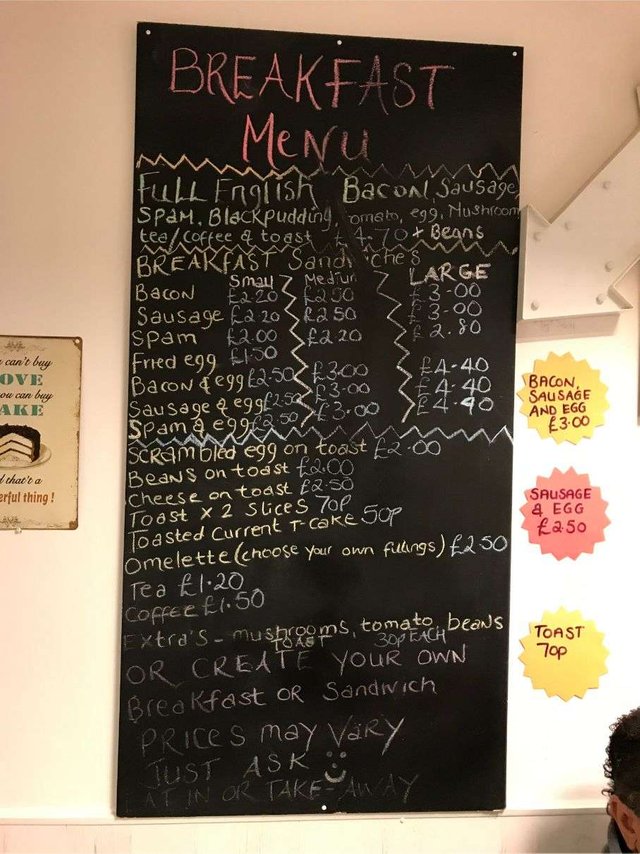 BREAKFAST
MENU
FULL English Bacon, Sausage,
SPAM, Blackpudding, tomato, egg, Mushroom
tea/coffee & toast £4.70 + Beans
BREAKFAST Sandwiches
Small Medium LARGE
Bacon £2.20 £2.50 £3.00
Sausage £2.20 £2.50 £3.00
Spam £2.00 £2.20 £2.80
Fried egg £1.50
Bacon & egg £2.50 £3.00 £4.40
Sausage & egg £2.50 £3.00 £4.40
Spam & egg £2.50 £3.00 £4.40
Scrambled egg on toast £2.00
Beans on toast £2.00
Cheese on toast £2.50
Toast x 2 Slices 70p
Toasted Current T-cake 50p
Omelette (choose your own fullings) £2.50
Tea £1.20
Coffee £1.50
Extra's - mushrooms, tomato, beans
TOAST 30p EACH
OR CREATE YOUR OWN
Breakfast OR Sandwich
PRICES may vary
JUST ASK
EAT IN OR TAKE-AWAY
can't buy
OVE
ou can buy
AKE
that's a
erful thing!
BACON,
SAUSAGE
AND EGG
£3.00
SAUSAGE
& EGG
£2.50
TOAST
70p